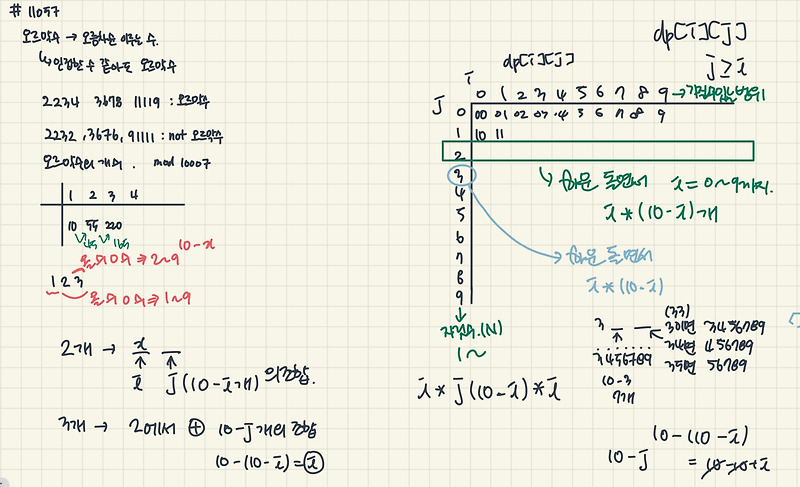 # 11057
오르막수 → 오름차순 이루는 수.
↳ 인접한 수 같아도 오르막수
2234 3678 11119 : 오르막수
2232, 3676, 91111 : not 오르막수
오르막수의 개수. mod 10007
1 2 3 4
10 55 220
45 165
10-x
⇒ 2~9
1 2 3
⇒ 1~9
2개 → x
i j (10-i개) 의 조합.
3개 → 2에서 ⊕ 10-j개의 조합
10-(10-i) = i
dp[i][j]
j ≥ i
dp[i][j]
i
j
0 1 2 3 4 5 6 7 8 9 →
0 00 01 02 03 04 5 6 7 8 9
1 10 11
2
3
4
5
6
7
8
9
↳ 하운 돌면서 i=0~9까지.
i*(10-i)개
→ 하운 돌면서
i*(10-i)
자릿수.(N)
1~
i * j(10-i)*i
3
(33)
3이면 3456789
34면 456789
35면 56789
3456789
10-3
7개
10-(10-i)
10-j = 10-10+i